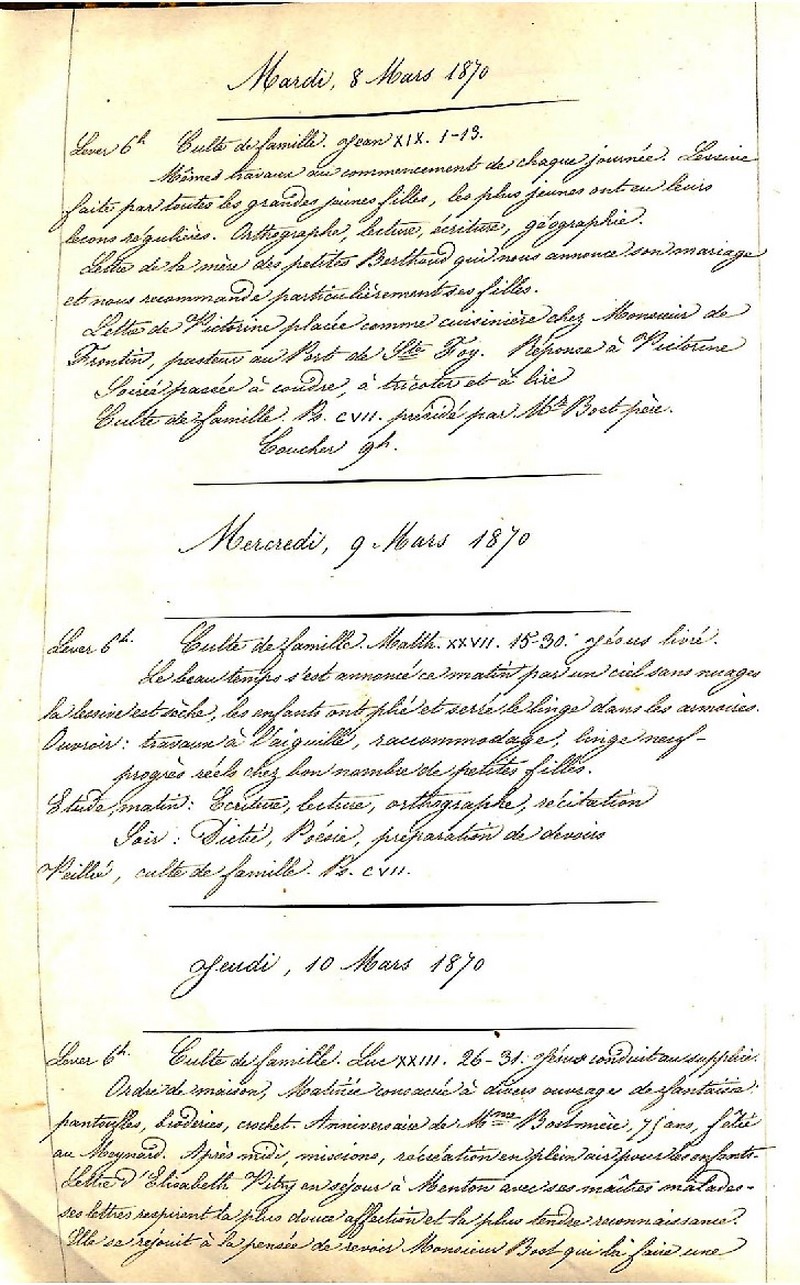 Mardi, 8 Mars 1870
Lever 6h Culte de famille. Jean XIX. 1-13.
Mêmes travaux au commencement de chaque journée. Lessive
faite par toutes les grandes jeunes filles, les plus jeunes ont eu leurs
leçons régulières. Orthographe, lecture, écriture, géographie.
Lettre de la mère des petites Berthoud qui nous annonce son mariage
et nous recommande particulièrement ses filles.
Lettre de Victorine placée comme cuisinière chez Monsieur de
Frontin, pasteur au Port de Ste Foy. Réponse à Victorine
Soirée passée à coudre, à tricoter et à lire
Culte de famille. Ps. CVII. présidé par Mr Bost père.
Coucher 9h.
Mercredi, 9 Mars 1870
Lever 6h. Culte de famille. Matth. XXVII. 15-30. Jésus livré.
Le beau temps s'est annoncé ce matin par un ciel sans nuages
la lessive est sèche, les enfants ont plié et serré le linge dans les armoires.
Ouvroir : travaux à l'aiguille, raccommodage, linge neuf-
progrès réels chez bon nombre de petites filles.
Etude, matin : Ecriture, lecture, orthographe, récitation
Soir : Dictée, Poésie, préparation de devoirs
Veillée, culte de famille. Ps. CVII.
Jeudi, 10 Mars 1870
Lever 6h. Culte de famille. Luc XXIII. 26-31. Jésus conduit au supplice.
Ordre de maison, Matinée consacrée à divers ouvrages de fantaisie :
pantoufles, broderies, crochet. Anniversaire de Mme Bost mère, 75 ans, fêté
au Meynard. Après midi, missions, récréation en plein air pour les enfants-
Lettre d'Elisabeth Vitry en séjour à Menton avec ses maîtres malades-
ses lettres respirent la plus douce affection et la plus tendre reconnaissance.
Elle se réjouit à la pensée de revoir Monsieur Bost qui là faire une